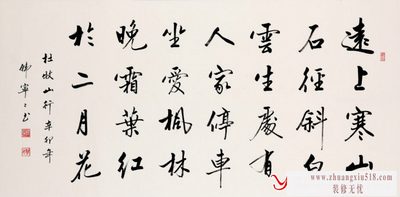 遠上寒山
石徑斜白
雲生處有
人家停車
坐愛楓林
晚霜葉紅
於二月花
杜牧山行辛卯年
www.zhuangxiu518.com
装修无忧